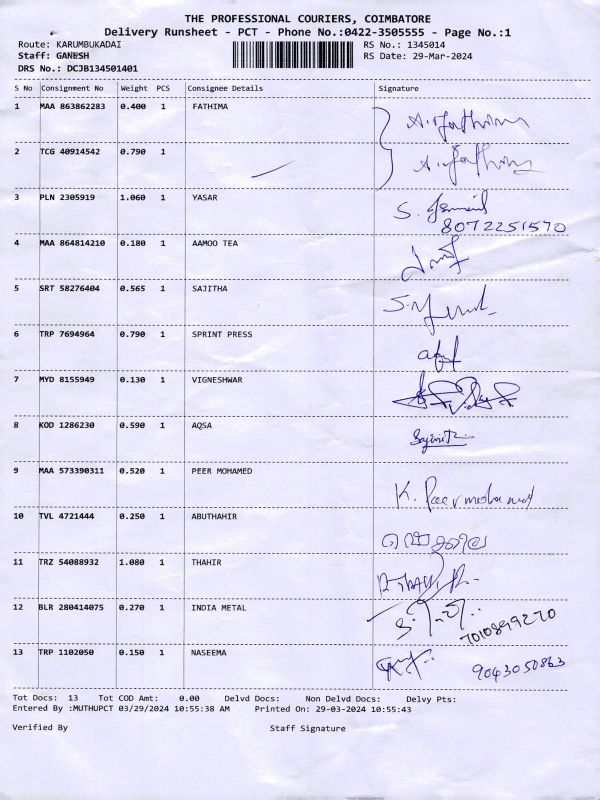 THE PROFESSIONAL COURIERS, COIMBATORE
Delivery Runsheet - PCT - Phone No.:0422-3505555 - Page No.:1
Route: KARUMBUKADAI RS No.: 1345014
Staff: GANESH RS Date: 29-Mar-2024
DRS No.: DCJB134501401
S No Consignment No Weight PCS Consignee Details Signature
1 MAA 863862283 0.400 1 FATHIMA A. Fathima
2 TCG 40914542 0.790 1 A. Fathima
3 PLN 2305919 1.060 1 YASAR S. Ismail
8072251570
4 MAA 864814210 0.180 1 AAMOO TEA
5 SRT 58276404 0.565 1 SAJITHA
6 TRP 7694964 0.790 1 SPRINT PRESS
7 MYD 8155949 0.130 1 VIGNESHWAR
8 KOD 1286230 0.590 1 AQSA
9 MAA 573390311 0.520 1 PEER MOHAMED K. Peer mohamed
10 TVL 4721444 0.250 1 ABUTHAHIR
11 TRZ 54088932 1.080 1 THAHIR
12 BLR 280414075 0.270 1 INDIA METAL
7010899270
13 TRP 1102050 0.150 1 NASEEMA 9043050863
Tot Docs: 13 Tot COD Amt: 0.00 Delvd Docs: Non Delvd Docs: Delvy Pts:
Entered By :MUTHUPCT 03/29/2024 10:55:38 AM Printed On: 29-03-2024 10:55:43
Verified By Staff Signature